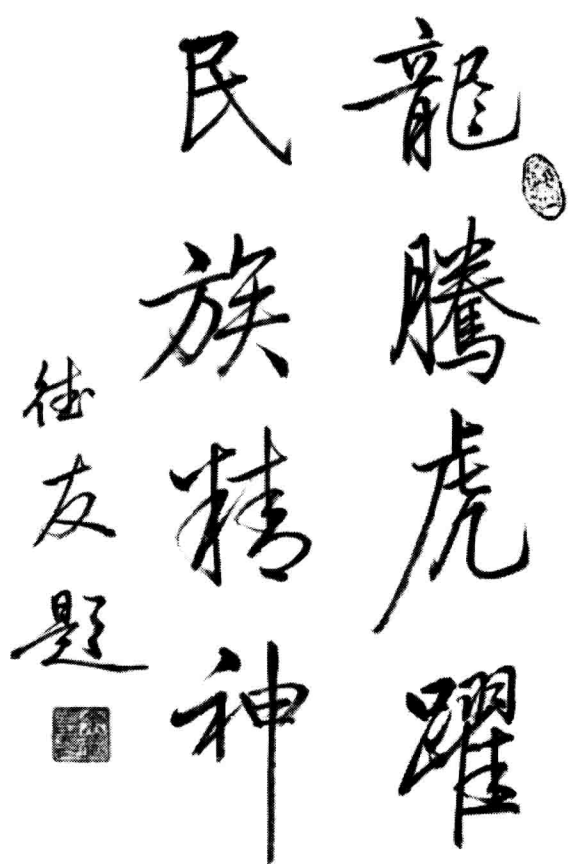 龍騰虎躍
民族精神
德友題